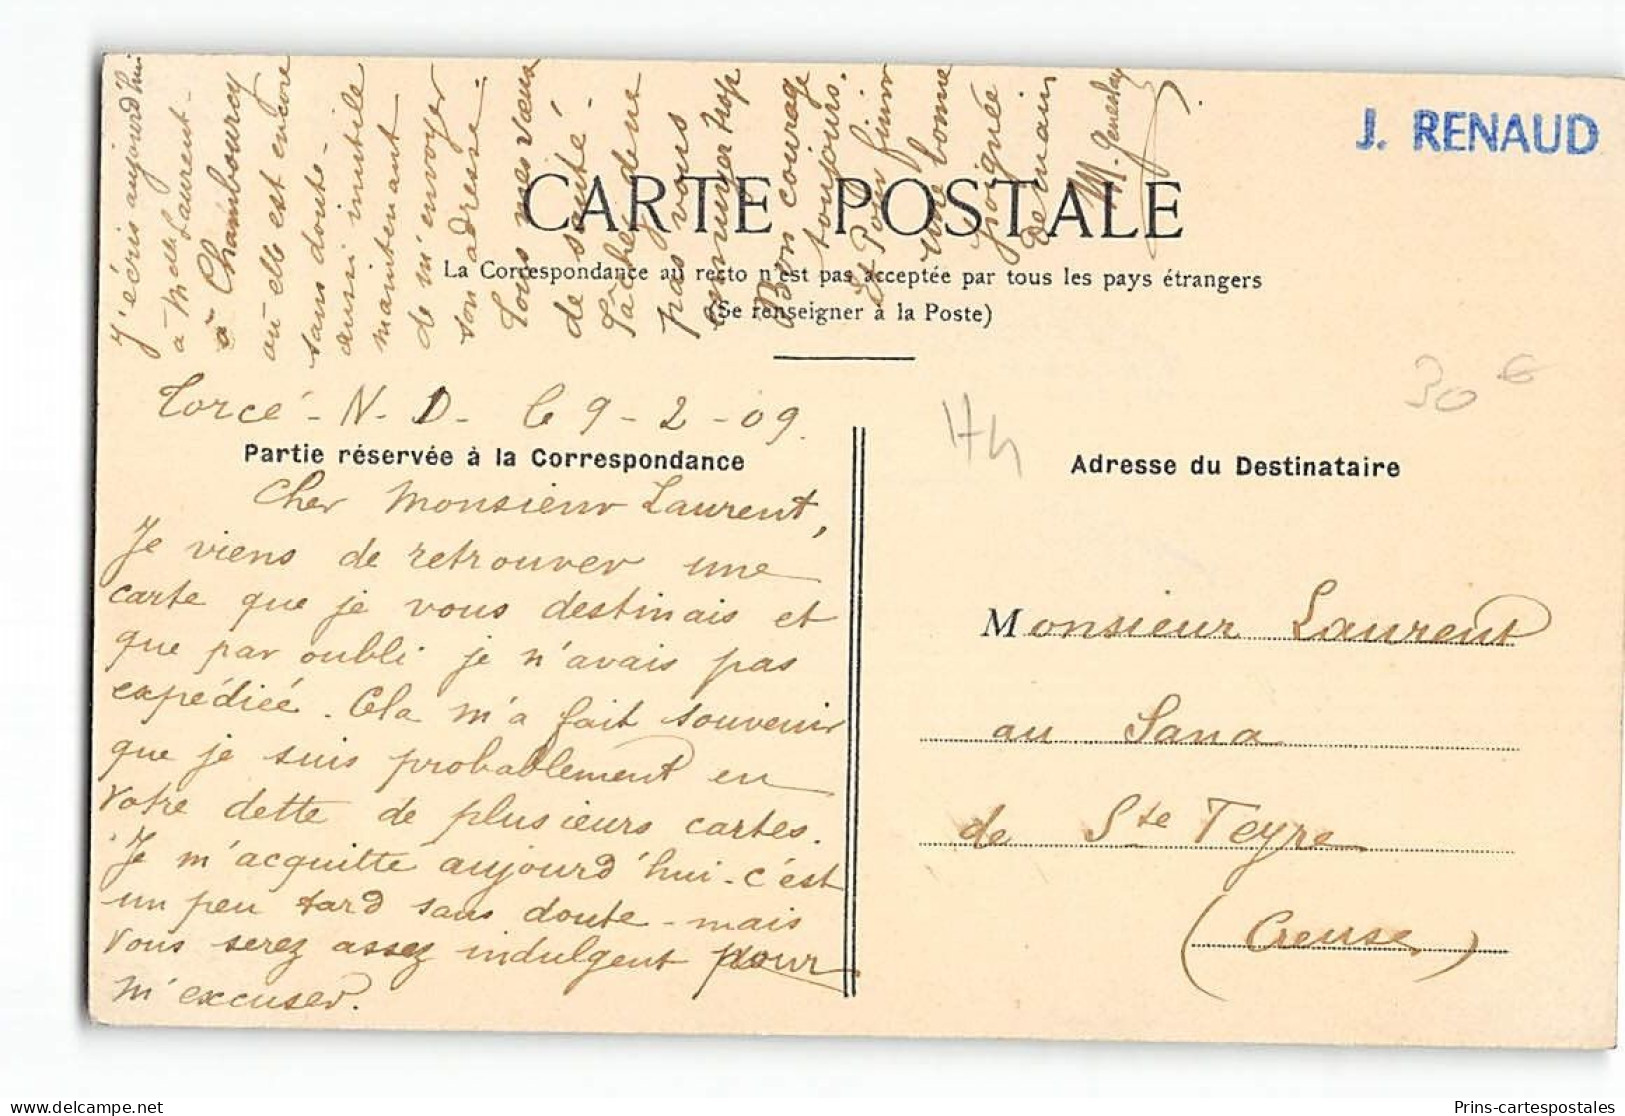 J. RENAUD
CARTE POSTALE
La Correspondance au recto n'est pas acceptée par tous les pays étrangers
(Se renseigner à la Poste)
30 €
Torcé - N. D - le 9 - 2 - 09.
Partie réservée à la Correspondance
Cher Monsieur Laurent,
Je viens de retrouver une
carte que je vous destinais et
que par oubli je n'avais pas
expédiée. Cela m'a fait souvenir
que je suis probablement en
votre dette de plusieurs cartes.
Je m'acquitte aujourd'hui - c'est
un peu tard sans doute - mais
vous serez assez indulgent pour
m'excuser.
J'écris aujourd'hui
à Melle Laurent -
à Chambourcy
où elle est encore
sans doute -
aussi inutile
maintenant
de m'envoyer
son adresse.
Tous mes vœux
de santé.
Tâchez de ne
pas vous
ennuyer trop
Bon courage
toujours.
et Pour finir
une bonne
poignée
de main
M.
Adresse du Destinataire
Monsieur Laurent
au Sana
de Ste Teyre
(Creuse)
Prins-cartespostales